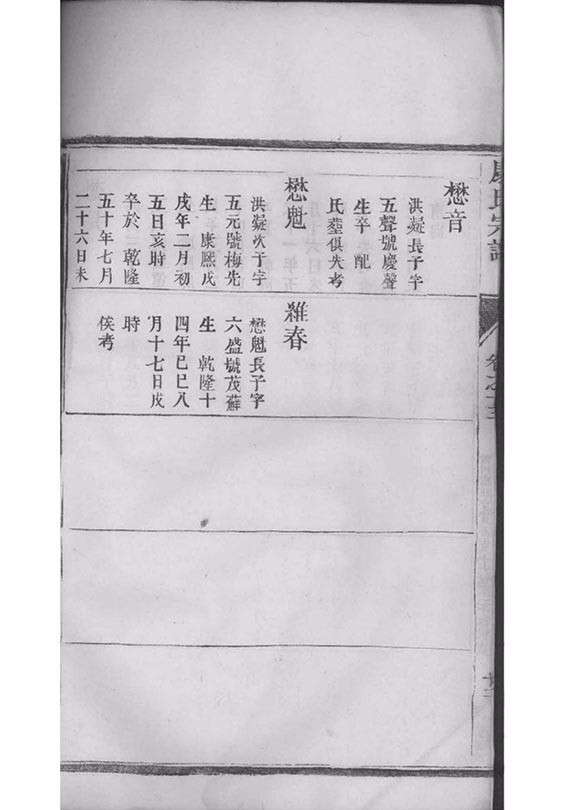 氏宗譜
卷之
懋音
洪凝長子字
五聲號慶聲
生卒 配
氏塟俱失考
懋魁
洪凝次子字
五元號梅先
生 康熙戊
戌年二月初
五日亥時
卒於 乾隆
五十年七月
二十六日未
時
俟考
維春
懋魁長子字
六盛號茂蘚
生 乾隆十
四年巳巳八
月十七日戌